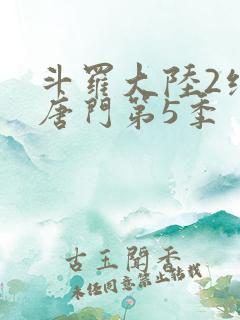 斗羅大陸2絕
唐門第5季
古玉聞香
未經同意禁止轉載